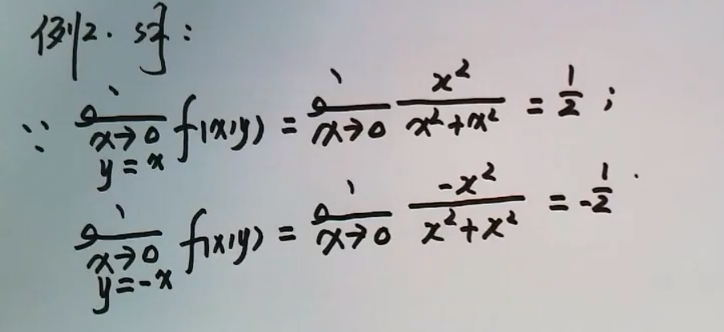 例2. 解:
∵ lim x→0 y=x f(x,y) = lim x→0 x²/(x²+x²) = 1/2 ;
lim x→0 y=-x f(x,y) = lim x→0 -x²/(x²+x²) = -1/2 .